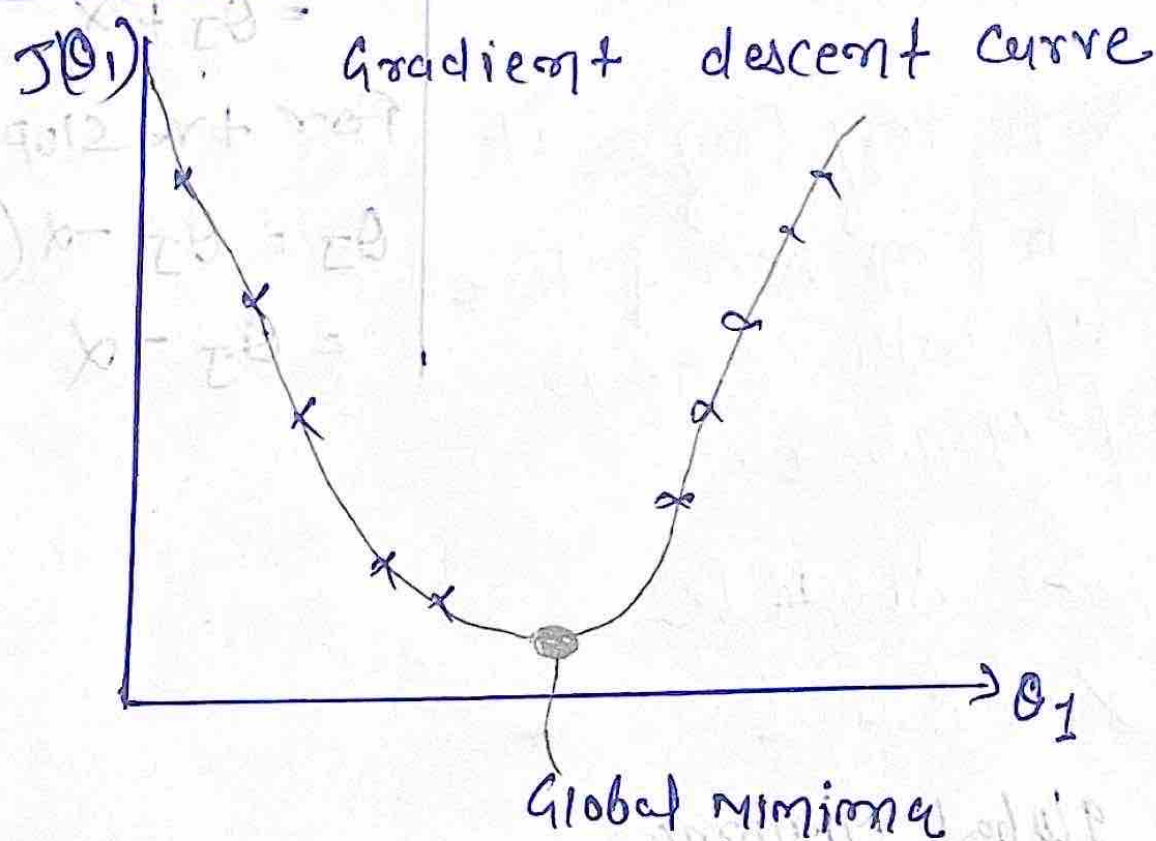 J(θ₁) Gradient descent curve
θ1
Global minima